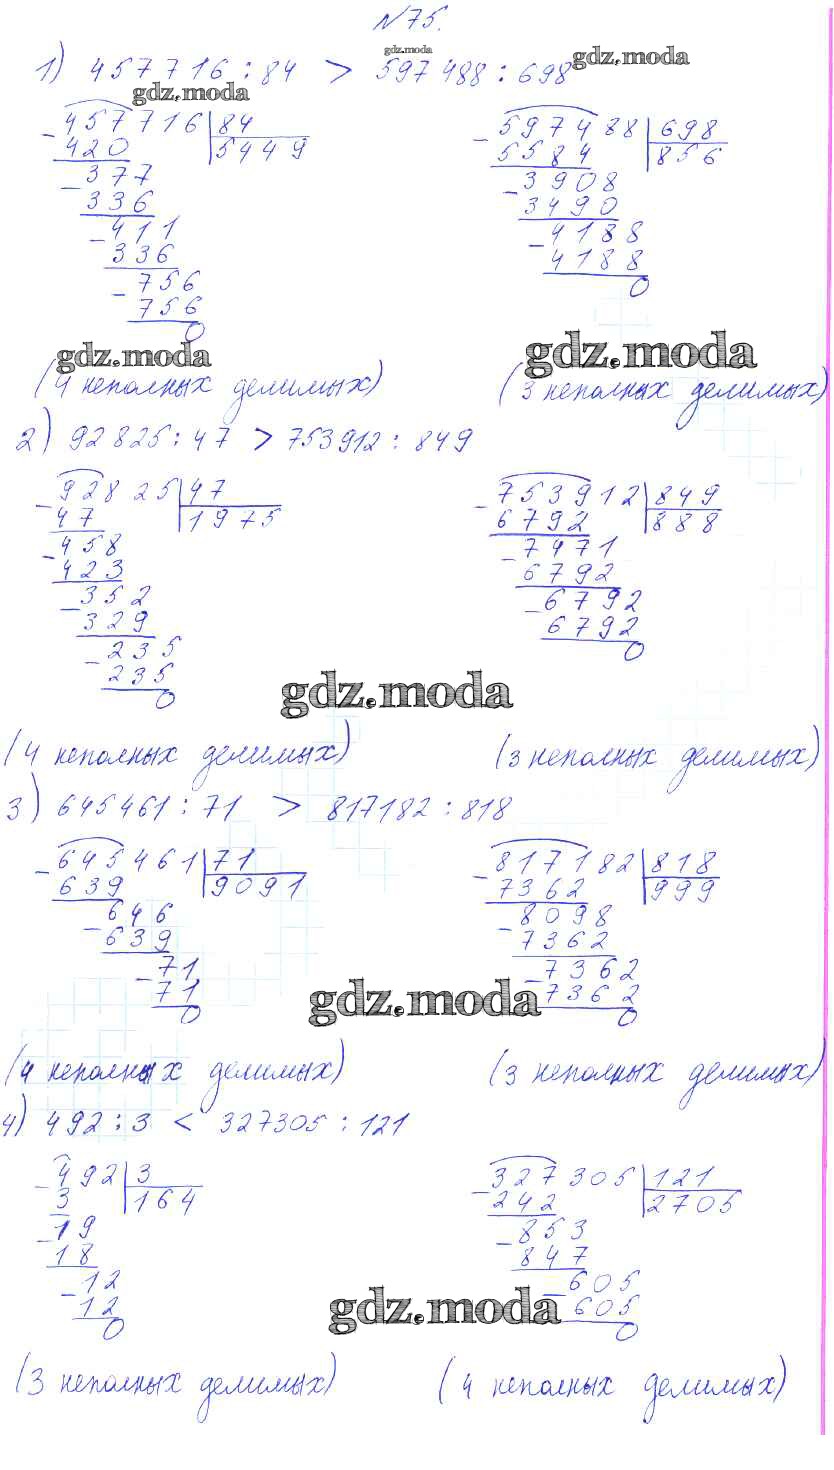 №75.
1) 457716 : 84 > 597488 : 698
gdz.moda
gdz.moda
gdz.moda
457716 84
- 420 5449
377
- 336
411
- 336
756
- 756
0
597488 698
- 5584 856
3908
- 3490
4188
- 4188
0
gdz.moda
gdz.moda
(4 неполных делимых)
(3 неполных делимых)
2) 92825 : 47 > 753912 : 849
92825 47
- 47 1975
458
- 423
352
- 329
235
- 235
0
753912 849
- 6792 888
7471
- 6792
6792
- 6792
0
gdz.moda
(4 неполных делимых)
(3 неполных делимых)
3) 645461 : 71 > 817182 : 818
645461 71
- 639 9091
646
- 639
71
- 71
0
817182 818
- 7362 999
8098
- 7362
7362
- 7362
0
gdz.moda
(4 неполных делимых)
(3 неполных делимых)
4) 492 : 3 < 327305 : 121
492 3
- 3 164
19
- 18
12
- 12
0
327305 121
- 242 2705
853
- 847
605
- 605
0
gdz.moda
(3 неполных делимых)
(4 неполных делимых)